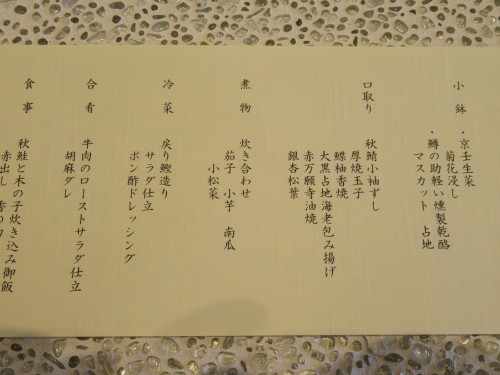 小鉢
・京壬生菜
菊花浸し
・鱒の助軽い燻製乾酪
マスカット 占地
口取り
秋鯖小袖ずし
厚焼玉子
鰈柚香焼
大黒占地海老包み揚げ
赤万願寺油焼
銀杏松葉
煮物
炊き合わせ
茄子 小芋 南瓜
小松菜
冷菜
戻り鰹造り
サラダ仕立
ポン酢ドレッシング
合肴
牛肉のローストサラダ仕立
胡麻ダレ
食事
秋鮭と木の子炊き込み御飯
赤出し 香の